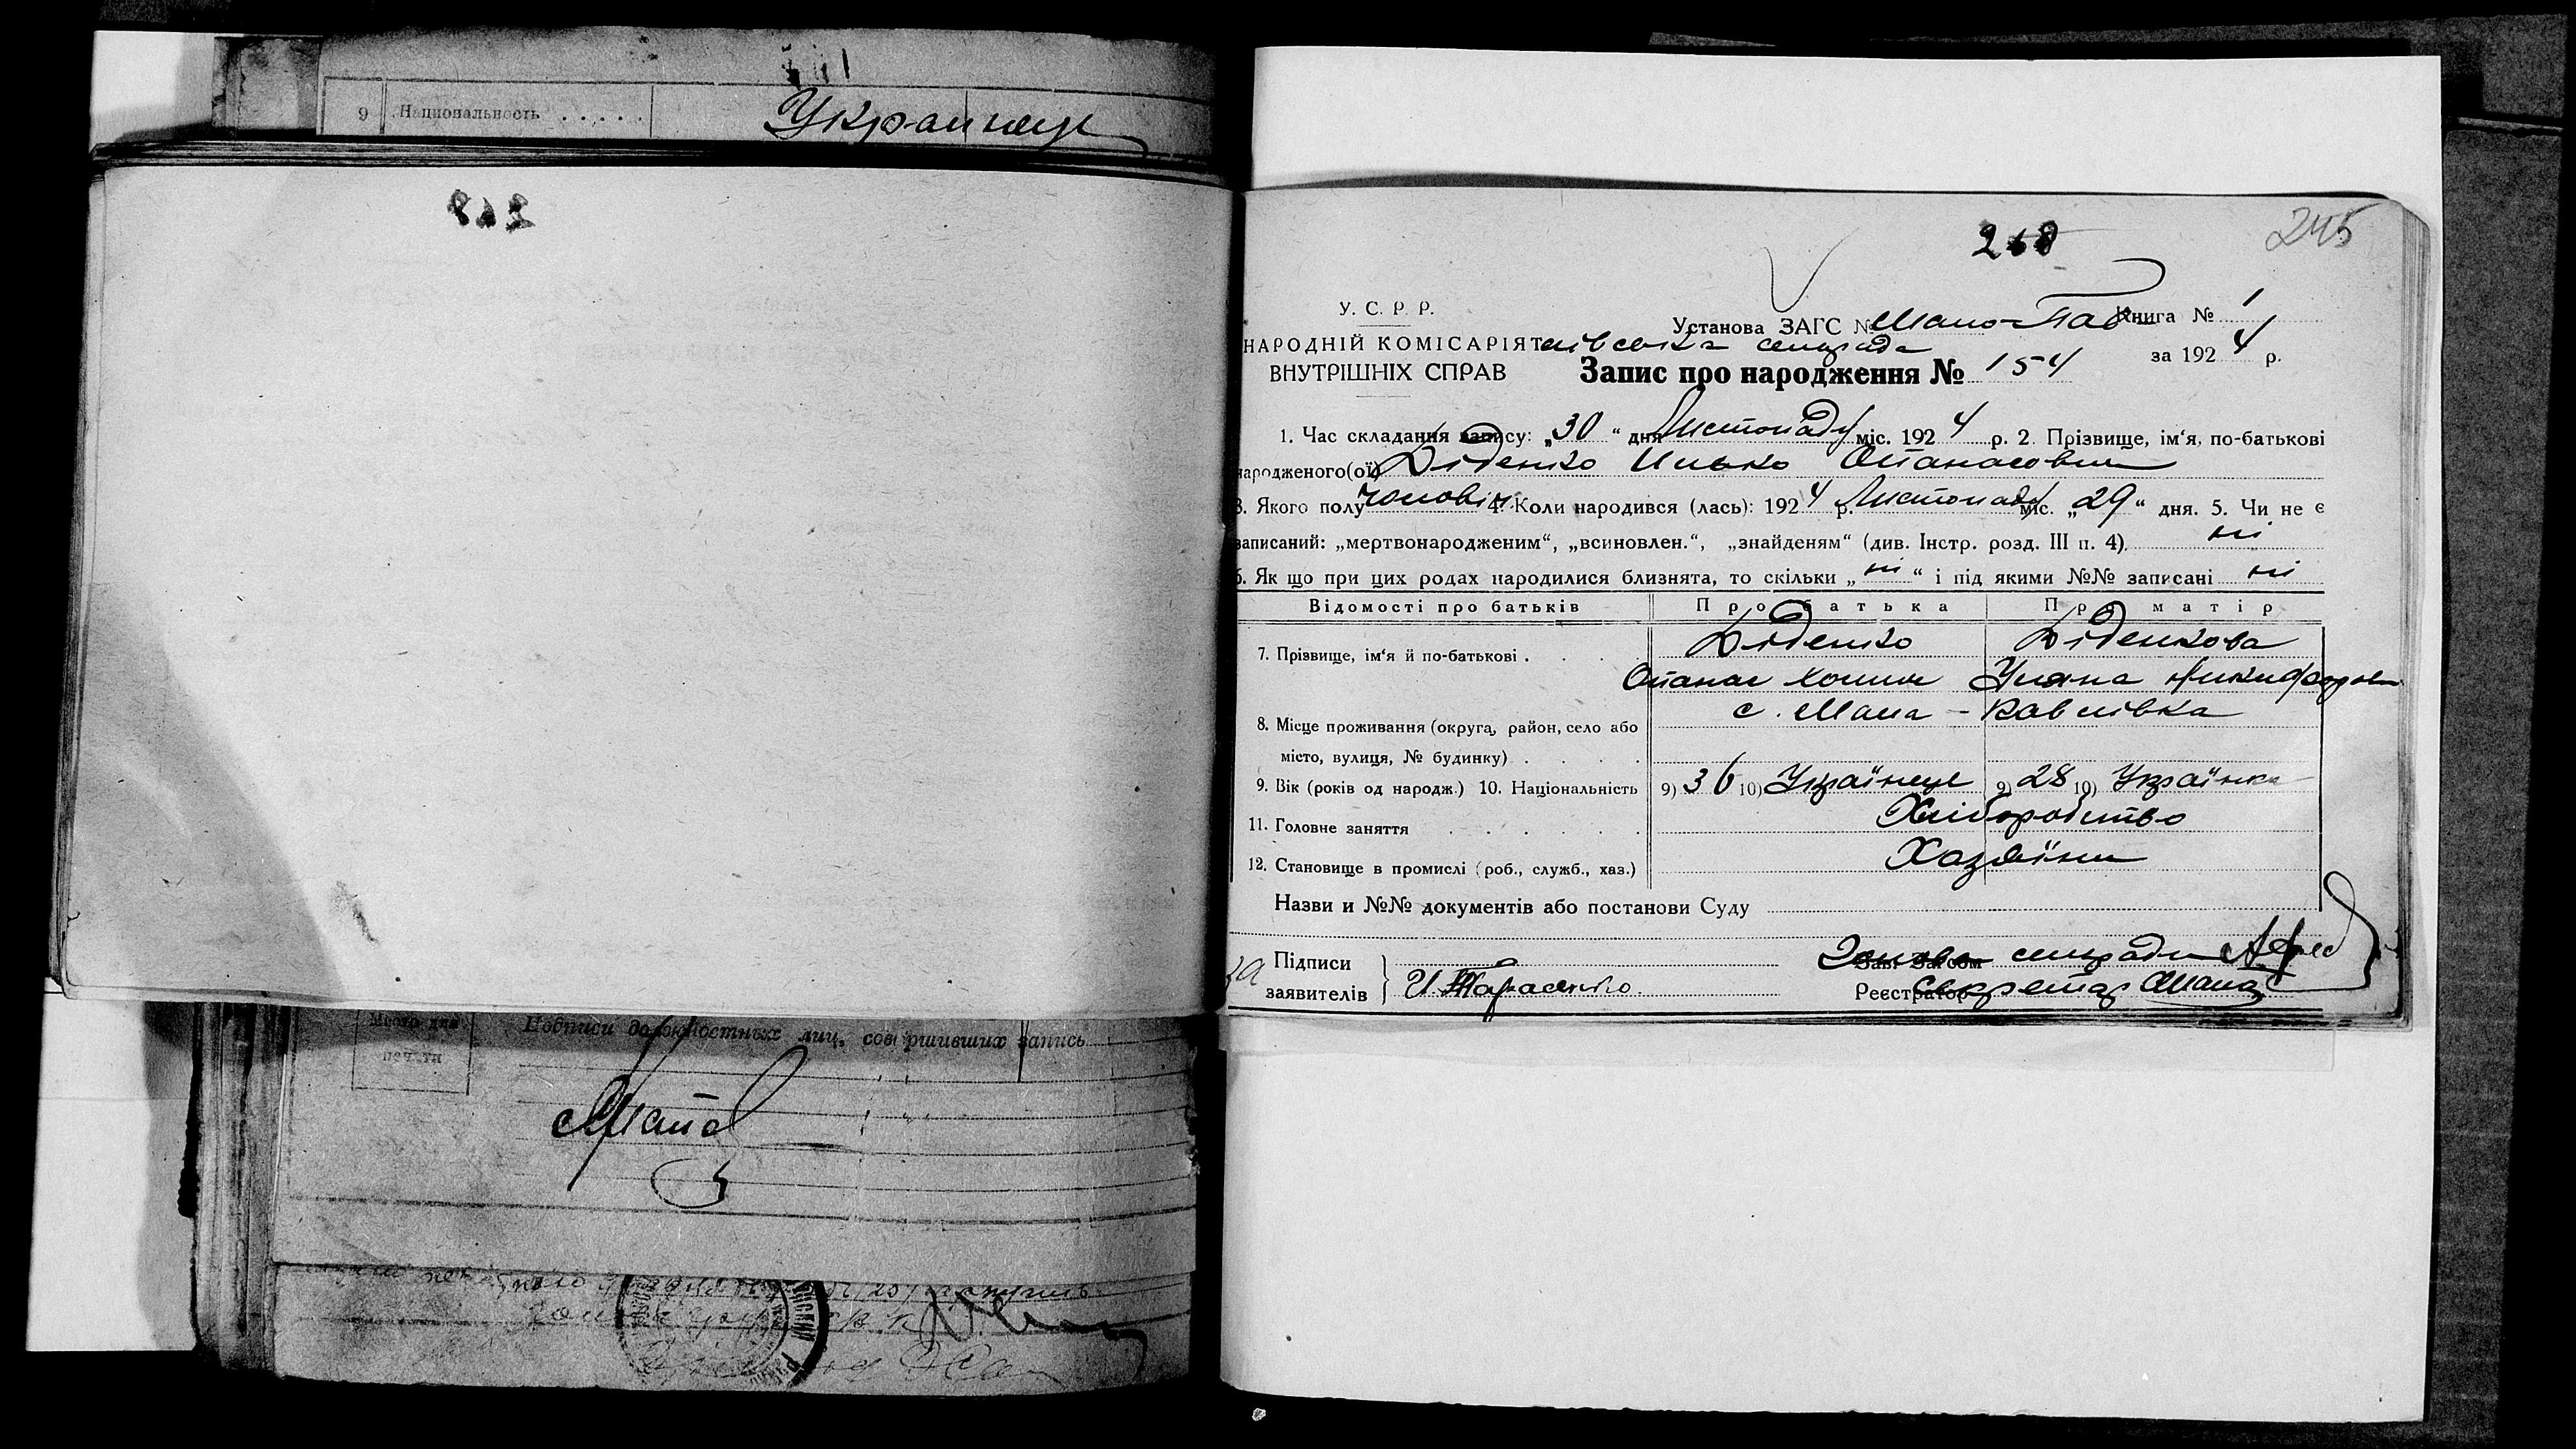 9 Национальность . . . . . Украинец
268
245
У. С. Р. Р.
Установа ЗАГС № Мало-Пав- Книга № 1
НАРОДНІЙ КОМІСАРІЯТ лівська сельрада за 1924 р.
ВНУТРІШНІХ СПРАВ Запис про народження № 154
1. Час складання запису: „30“ дня Листопаду міс. 1924 р. 2. Прізвище, ім‘я, по-батькові
народженого(ої) Діденко Илько Опанасович
3. Якого полу чоловіч. 4. Коли народився (лась): 1924 р. Листопаду міс. „29“ дня. 5. Чи не є
записаний: „мертвонародженим“, „всиновлен.“, „знайденям“ (див. Інстр. розд. III п. 4). ні
6. Як що при цих родах народилися близнята, то скільки „ні“ і під якими №№ записані ні
Відомості про батьків Про батька Про матір
7. Прізвище, ім‘я й по-батькові . . . . Діденко Діденкова
Опанас Хомич Уляна Никифоровн
8. Місце проживання (округа, район, село або с. Мала-Павлівка
місто, вулиця, № будинку) . . . .
9. Вік (років од народж.) 10. Національність 9) 36 10) Українець 9) 28 10) Українка
11. Головне заняття . . . . . . Хліборобство
12. Становище в промислі (роб., служб., хаз.) Хазяїни
Назви и №№ документів або постанови Суду
Підписи Голова сельради
заявителів И Тарасенко Реєстратор Секретар
Место для печати
Подписи должностных лиц, совершивших запись